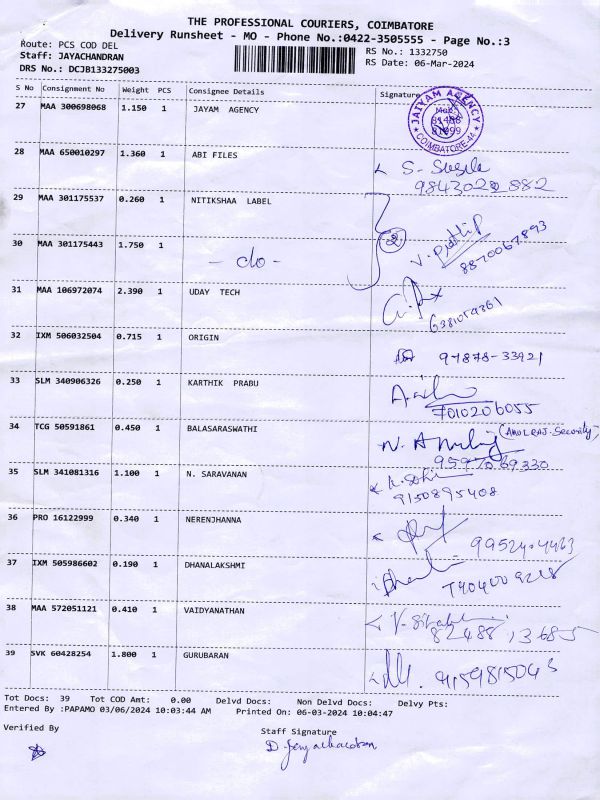 THE PROFESSIONAL COURIERS, COIMBATORE
Delivery Runsheet - MO - Phone No.:0422-3505555 - Page No.:3
Route: PCS COD DEL
RS No.: 1332750
Staff: JAYACHANDRAN
RS Date: 06-Mar-2024
DRS No.: DCJB133275003
S No Consignment No Weight PCS Consignee Details Signature
27 MAA 300698068 1.150 1 JAYAM AGENCY
JAIYAM AGENCY
COIMBATORE-44
28 MAA 650010297 1.360 1 ABI FILES
29 MAA 301175537 0.260 1 NITIKSHAA LABEL
30 MAA 301175443 1.750 1 - do -
8870067893
31 MAA 106972074 2.390 1 UDAY TECH
32 IXM 506032504 0.715 1 ORIGIN
97878-33921
33 SLM 340906326 0.250 1 KARTHIK PRABU
7010206055
34 TCG 50591861 0.450 1 BALASARASWATHI
(AMULRAJ-Security)
35 SLM 341081316 1.100 1 N. SARAVANAN
9150895408
36 PRO 16122999 0.340 1 NERENJHANNA
37 IXM 505986602 0.190 1 DHANALAKSHMI
38 MAA 572051121 0.410 1 VAIDYANATHAN
82488 13685
39 SVK 60428254 1.800 1 GURUBARAN
9159815043
Tot Docs: 39 Tot COD Amt: 0.00 Delvd Docs: Non Delvd Docs: Delvy Pts:
Entered By :PAPAMO 03/06/2024 10:03:44 AM Printed On: 06-03-2024 10:04:47
Verified By
Staff Signature